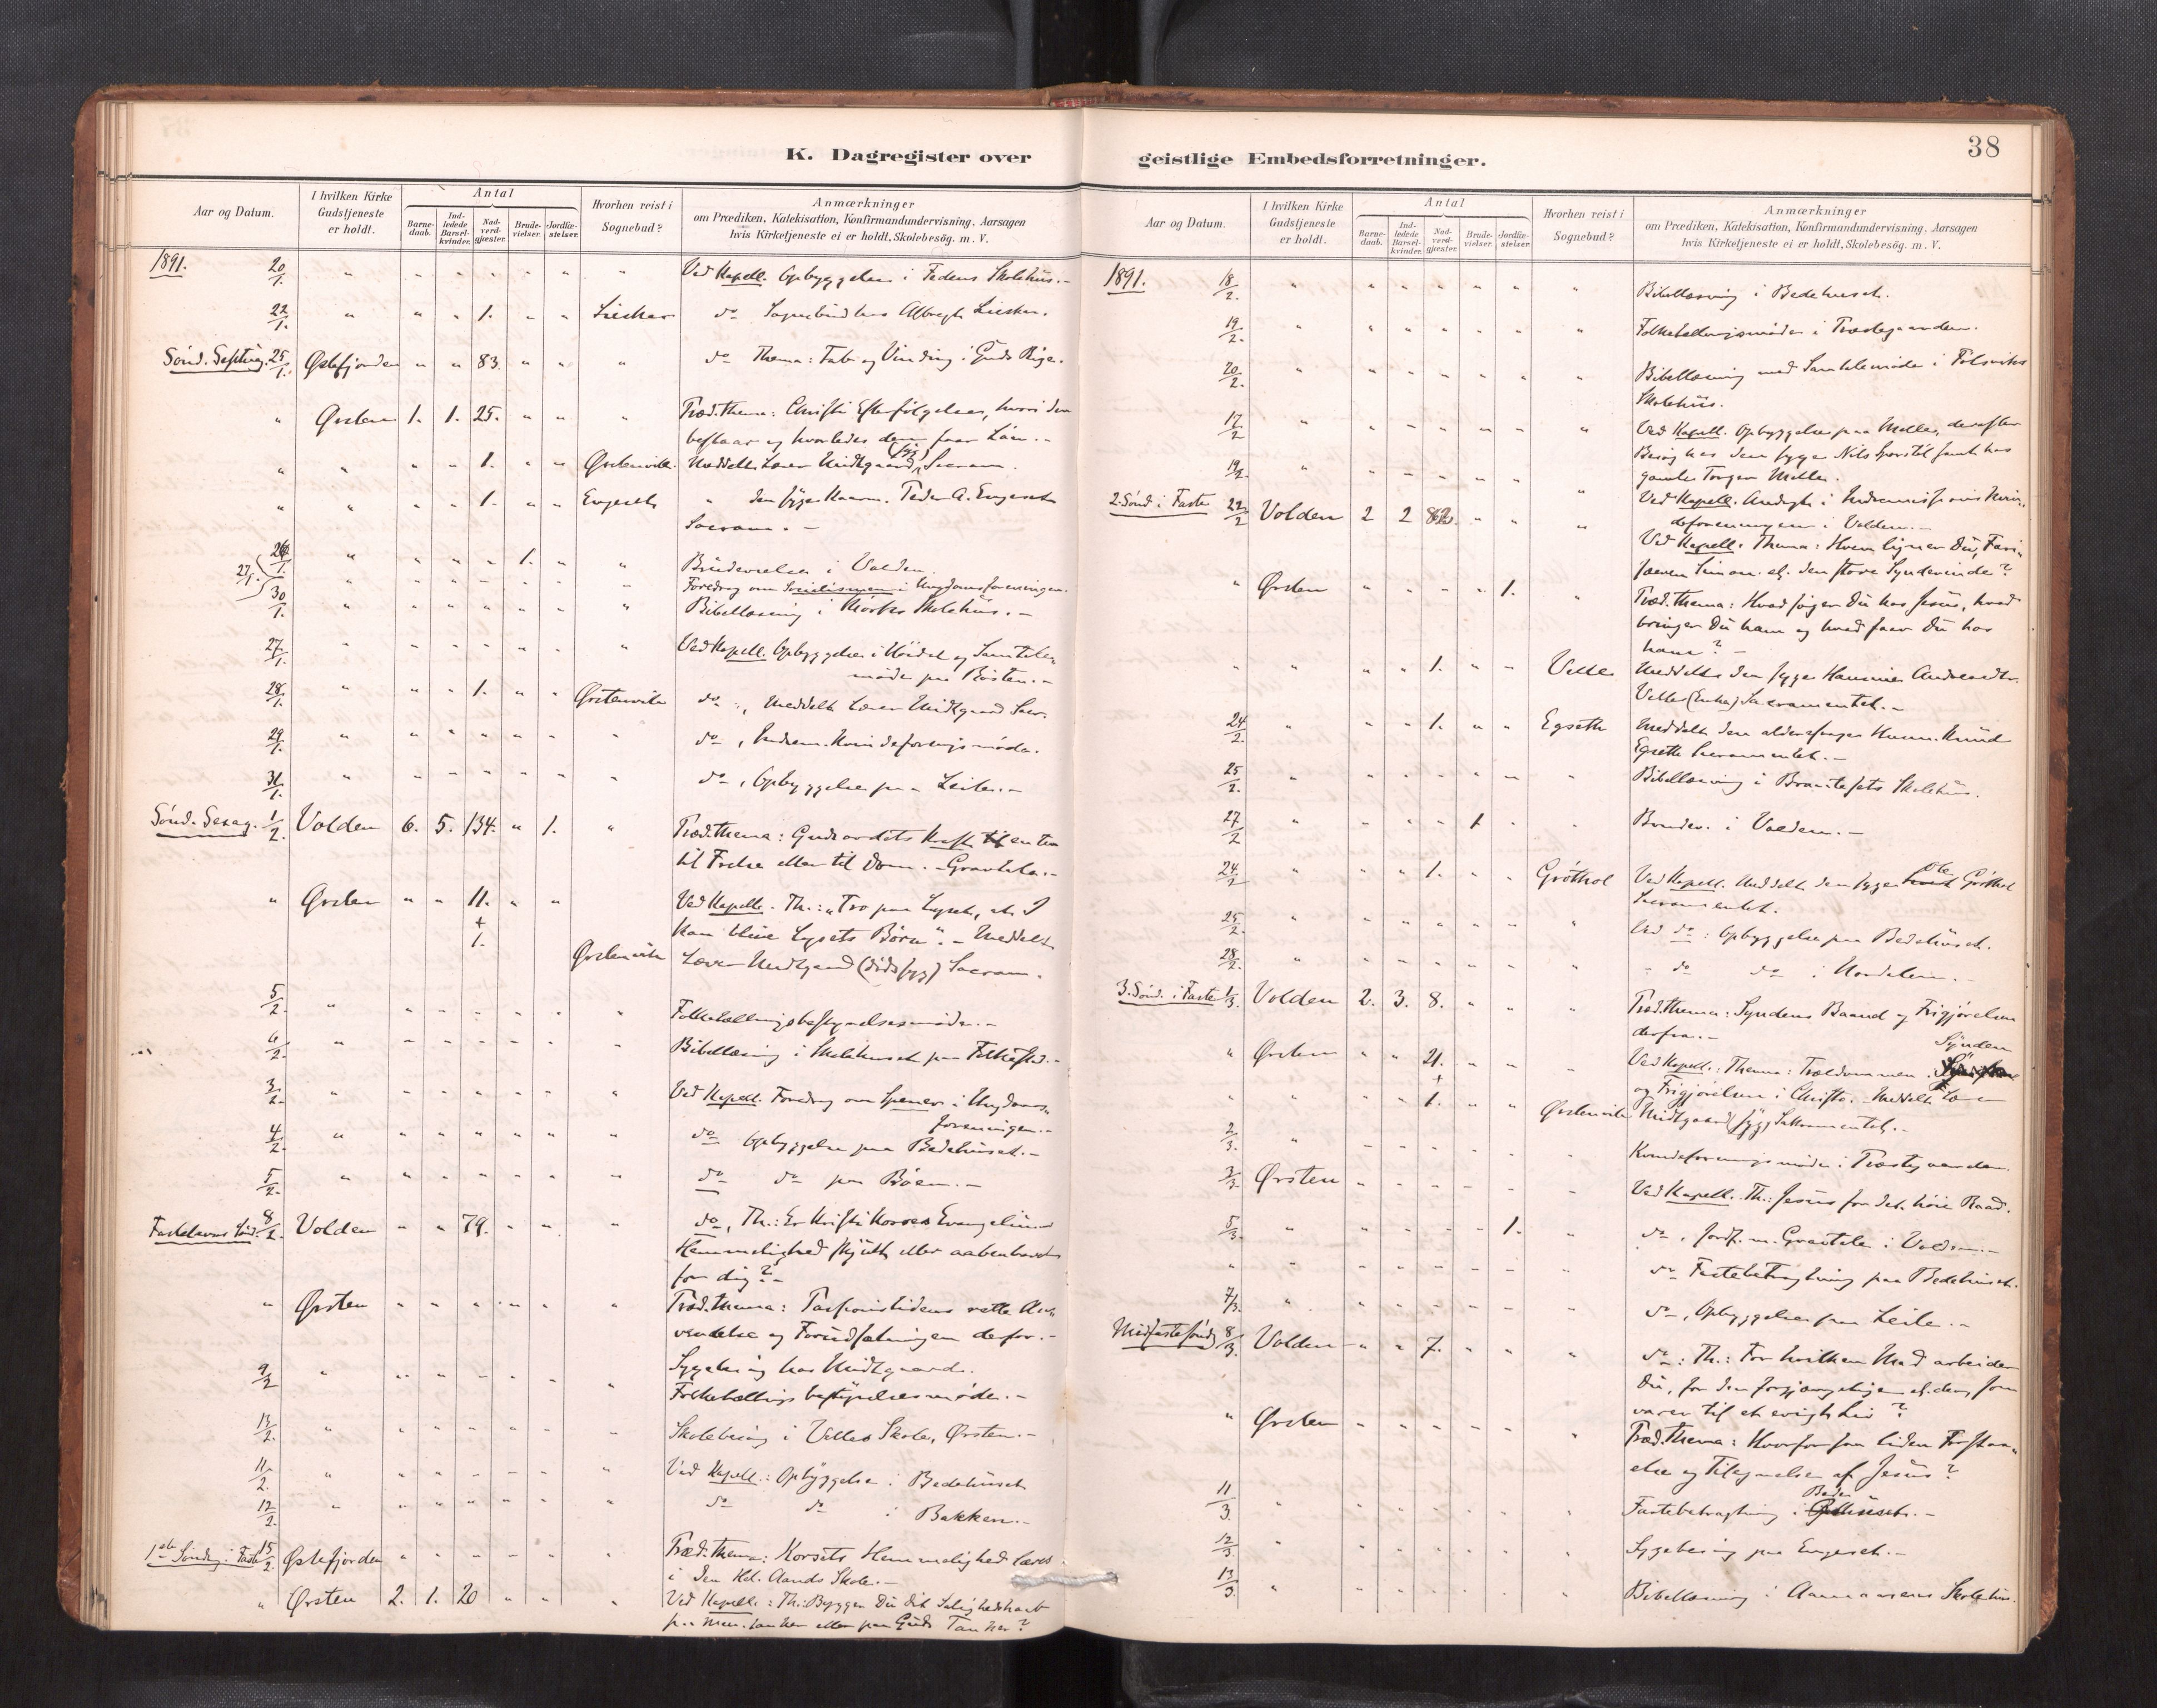 38
K. Dagregister over
geistlige Embedsforretninger.
Aar og Datum.
I hvilken Kirke Gudstjeneste er holdt.
Antal
Barne-daab.
Ind-ledede Barsel-kvinder.
Nad-verd-gjester.
Brude-vielser.
Jordfæ-stelser.
Hvorhen reist i Sognebud?
Anmærkninger
om Prædiken, Katekisation, Konfirmandundervisning, Aarsagen
hvis Kirketjeneste ei er holdt, Skolebesög. m. V.
1891. 20/1. " " " " " " " Ved Kapell. Opbyggelse i Skolehus.-
22/1. " " " 1. " " do Sognebud hos
Sönd. Septuag. 25/1. Østefjorden " " 83. " " " do Thema: Tab og Vinding i Guds Rige.
" Ørsten 1. 1. 25. " " " Præd. thema: Christi Efterfølgelse, hvori den
bestaar og hvorledes den faar Løn.-
" " " " 1. " " Ørstenvik. Meddelt Lærer Midtgaard (syg) Sacram.
" " " " 1. " " Engeset " den syge Peder A. Engeset
Sacram.-
" " " " 1. " " Brudevielse i Volden.
27/1. " Foredrag om Socialismen i Ungdomsforeningen.
30/1. " " " " " " " Bibellæsning i Skolehus.-
27/1. " " " " " " " Ved Kapell. Opbyggelse i og Samtale-
møde paa
28/1. " " " 1. " " Ørstenvik do , Meddelt Lærer Midtgaard Sacr.
29/1. " " " " " " " do , Kvindeforeningsmøde.
31/1. " " " " " " " do , Opbyggelse paa
Sönd. Sexag. 1/2. Volden 6. 5. 134. " 1. " Præd. thema: Gudsordets Kraft enten
til Frelse eller til Dom.- Gravtale.-
" Ørsten " " 11. " " Ved Kapell. Th.: "Tro paa Lyset, at I
+
1.
kan blive Lysets Børn".- Meddelt
Ørstenvik Lærer Midtgaard (syg) Sacram.
5/2. " " " " " " " Folketællingsbestyrelsesmøde.-
6/2. " " " " " " " Bibellæsning i Skolehuset paa
3/2. " " " " " " " Ved Kapell. Foredrag om Spener i Ungdoms-
foreningen.-
4/2. " " " " " " " do Opbyggelse paa Bedehuset.-
5/2. " " " " " " " do do paa
Fastelavns Sönd. 8/2. Volden " " 79. " " " do, Th.: Er Kristi Korses Evangelium
Hemmelighed skjult eller aabenbaret
for dig?-
" Ørsten " " " " " " Præd. thema: Passionstidens rette An-
vendelse og Forudsætningen derfor.-
9/2 " " " " " " " Sygebesøg hos Midtgaard.
Folketællings bestyrelsesmøde.-
13/2. " " " " " " " Skolebesøg i Velle Skole, Ørsten.-
11/2. " " " " " " " Ved Kapell.: Opbyggelse i Bedehuset
12/2. " " " " " " " do do i Bakken.-
1ste Söndag i Faste 15/2. Østefjorden " " " " " " Præd. thema: Korsets Hemmelighed læres
i den Hel. Aands Skole.-
" Ørsten 2. 1. 20 " " " Ved Kapell.: Th.: Bygger Du dit Salighedshaab
paa Men. Tanker eller paa Guds Tanker?
Aar og Datum.
I hvilken Kirke Gudstjeneste er holdt.
Antal
Barne-daab.
Ind-ledede Barsel-kvinder.
Nad-verd-gjester.
Brude-vielser.
Jordfæ-stelser.
Hvorhen reist i Sognebud?
Anmærkninger
om Prædiken, Katekisation, Konfirmandundervisning, Aarsagen
hvis Kirketjeneste ei er holdt, Skolebesög. m. V.
1891. 18/2. " " " " " " " Bibellæsning i Bedehuset.
19/2. " " " " " " " i Præstegaarden.
20/2. " " " " " " " Bibellæsning med Samtalemøde i
Skolehus.
17/2 " " " " " " " Ved Kapell. Opbyggelse paa Melle, derefter
Besøg hos den syge Nils samt hos
19/2. " " " " " " " gamle Melle.
Ved Kapell. Andagt i Indremissions Kvin-
deforeningen i Volden.-
2. Sönd i Faste 22/2 Volden 2 2 82. " " " Ved Kapell. Thema: Hvem ligner Du, Fari-
sæeren Simon el. den store Synderinde?
" Ørsten " " " " 1. " Præd. thema: Hvad søger Du hos Jesus, hvad
bringer Du ham og hvad faar Du hos
ham?-
" " " " 1. " " Velle Meddelt den syge
Velle (Enke) Sacramentet.-
24/2. " " " 1. " " Egseth Meddelt den Knud
Egseth Sacramentet.-
25/2. " " " " " " " Bibellæsning i Skolehus.
27/2 1 " " Brudev. i Volden.-
24/2 " " " 1. " " Gröthol Ved Kapell. Meddelt den syge Ole Gröthol
Sacramentet.
25/2. " " " " " " " Ved do: Opbyggelse paa Bedehuset.
28/2. " " " " " " " " do do i
3. Sönd. i Faste 1/3. Volden 2. 3. 8. " " " Præd. thema: Syndens Baand og Frigjørelsen
derfra.-
" Ørsten " " 21. " " " Ved Kapell.: Thema: Trældommen i Synden
+
og Frigjørelsen i Christo.- Meddelt
" " " " 1. " " Ørstenvik Midtgaard (syg) Sakramentet.-
2/3. " " " " " " " Kvindeforeningsmøde i Præstegaarden.
3/3. Ørsten " " " " " " Ved Kapell. Th.: Jesus for det høie Raad.
5/3. " " " " " 1. " do, Jordf. m. Gravtale i Volden.-
" " " " " " " " do Fastebetragtning paa Bedehuset.
7/3. " " " " " " " do, Opbyggelse paa
Midfastesönd. 8/3. Volden " " 7. " " " do: Th.: For hvilken Mad arbeider
Du, for den forgjængelige el. den, som
varer til et evigt Liv?
" Ørsten " " " " " " Præd. thema: Hvorfor saa liden Forstaa-
else og Tilegnelse af Jesus?
11/3. " " " " " " " Fastebetragtning i Bedehuset.-
12/3. " " " " " " " Sygebesøg paa Engeset.-
13/3. " " " " " " " Bibellæsning i Skolehus.